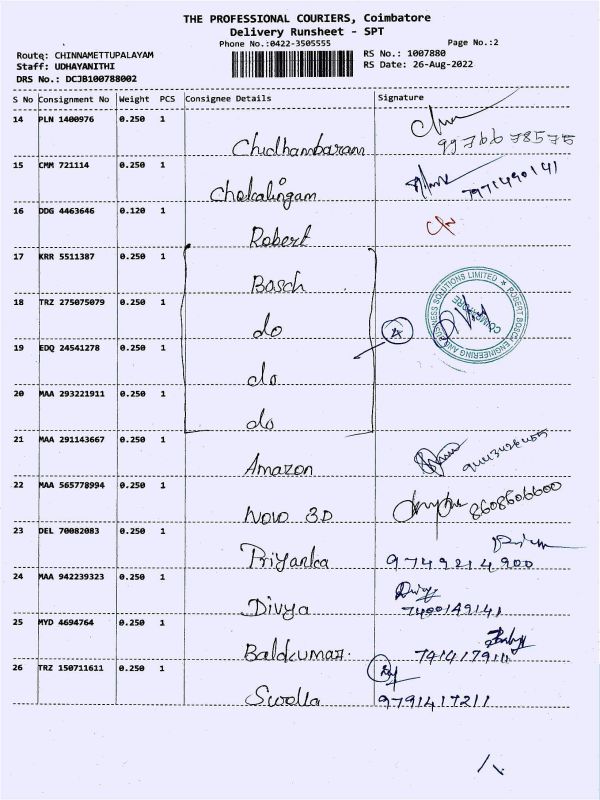 THE PROFESSIONAL COURIERS, Coimbatore
Delivery Runsheet - SPT
Phone No.:0422-3505555 Page No.:2
Route: CHINNAMETTUPALAYAM RS No.: 1007880
Staff: UDHAYANITHI RS Date: 26-Aug-2022
DRS No.: DCJB100788002
S No Consignment No Weight PCS Consignee Details Signature
14 PLN 1400976 0.250 1
Chidhambaram
15 CMM 721114 0.250 1
Chokalingam 7971490141
16 DDG 4463646 0.120 1
Robert
17 KRR 5511387 0.250 1
Bosch
18 TRZ 275075079 0.250 1
do 4
ROBERT BOSCH ENGINEERING AND BUSINESS SOLUTIONS LIMITED
COIMBATORE
19 EDQ 24541278 0.250 1
do
20 MAA 293221911 0.250 1
do
21 MAA 291143667 0.250 1
Amazon
22 MAA 565778994 0.250 1
Novo 3D 8608606600
23 DEL 70082083 0.250 1
Priyanka 9749214900
24 MAA 942239323 0.250 1
Divya 7400149141
25 MYD 4694764 0.250 1
Balakumar.
26 TRZ 150711611 0.250 1
9791417211